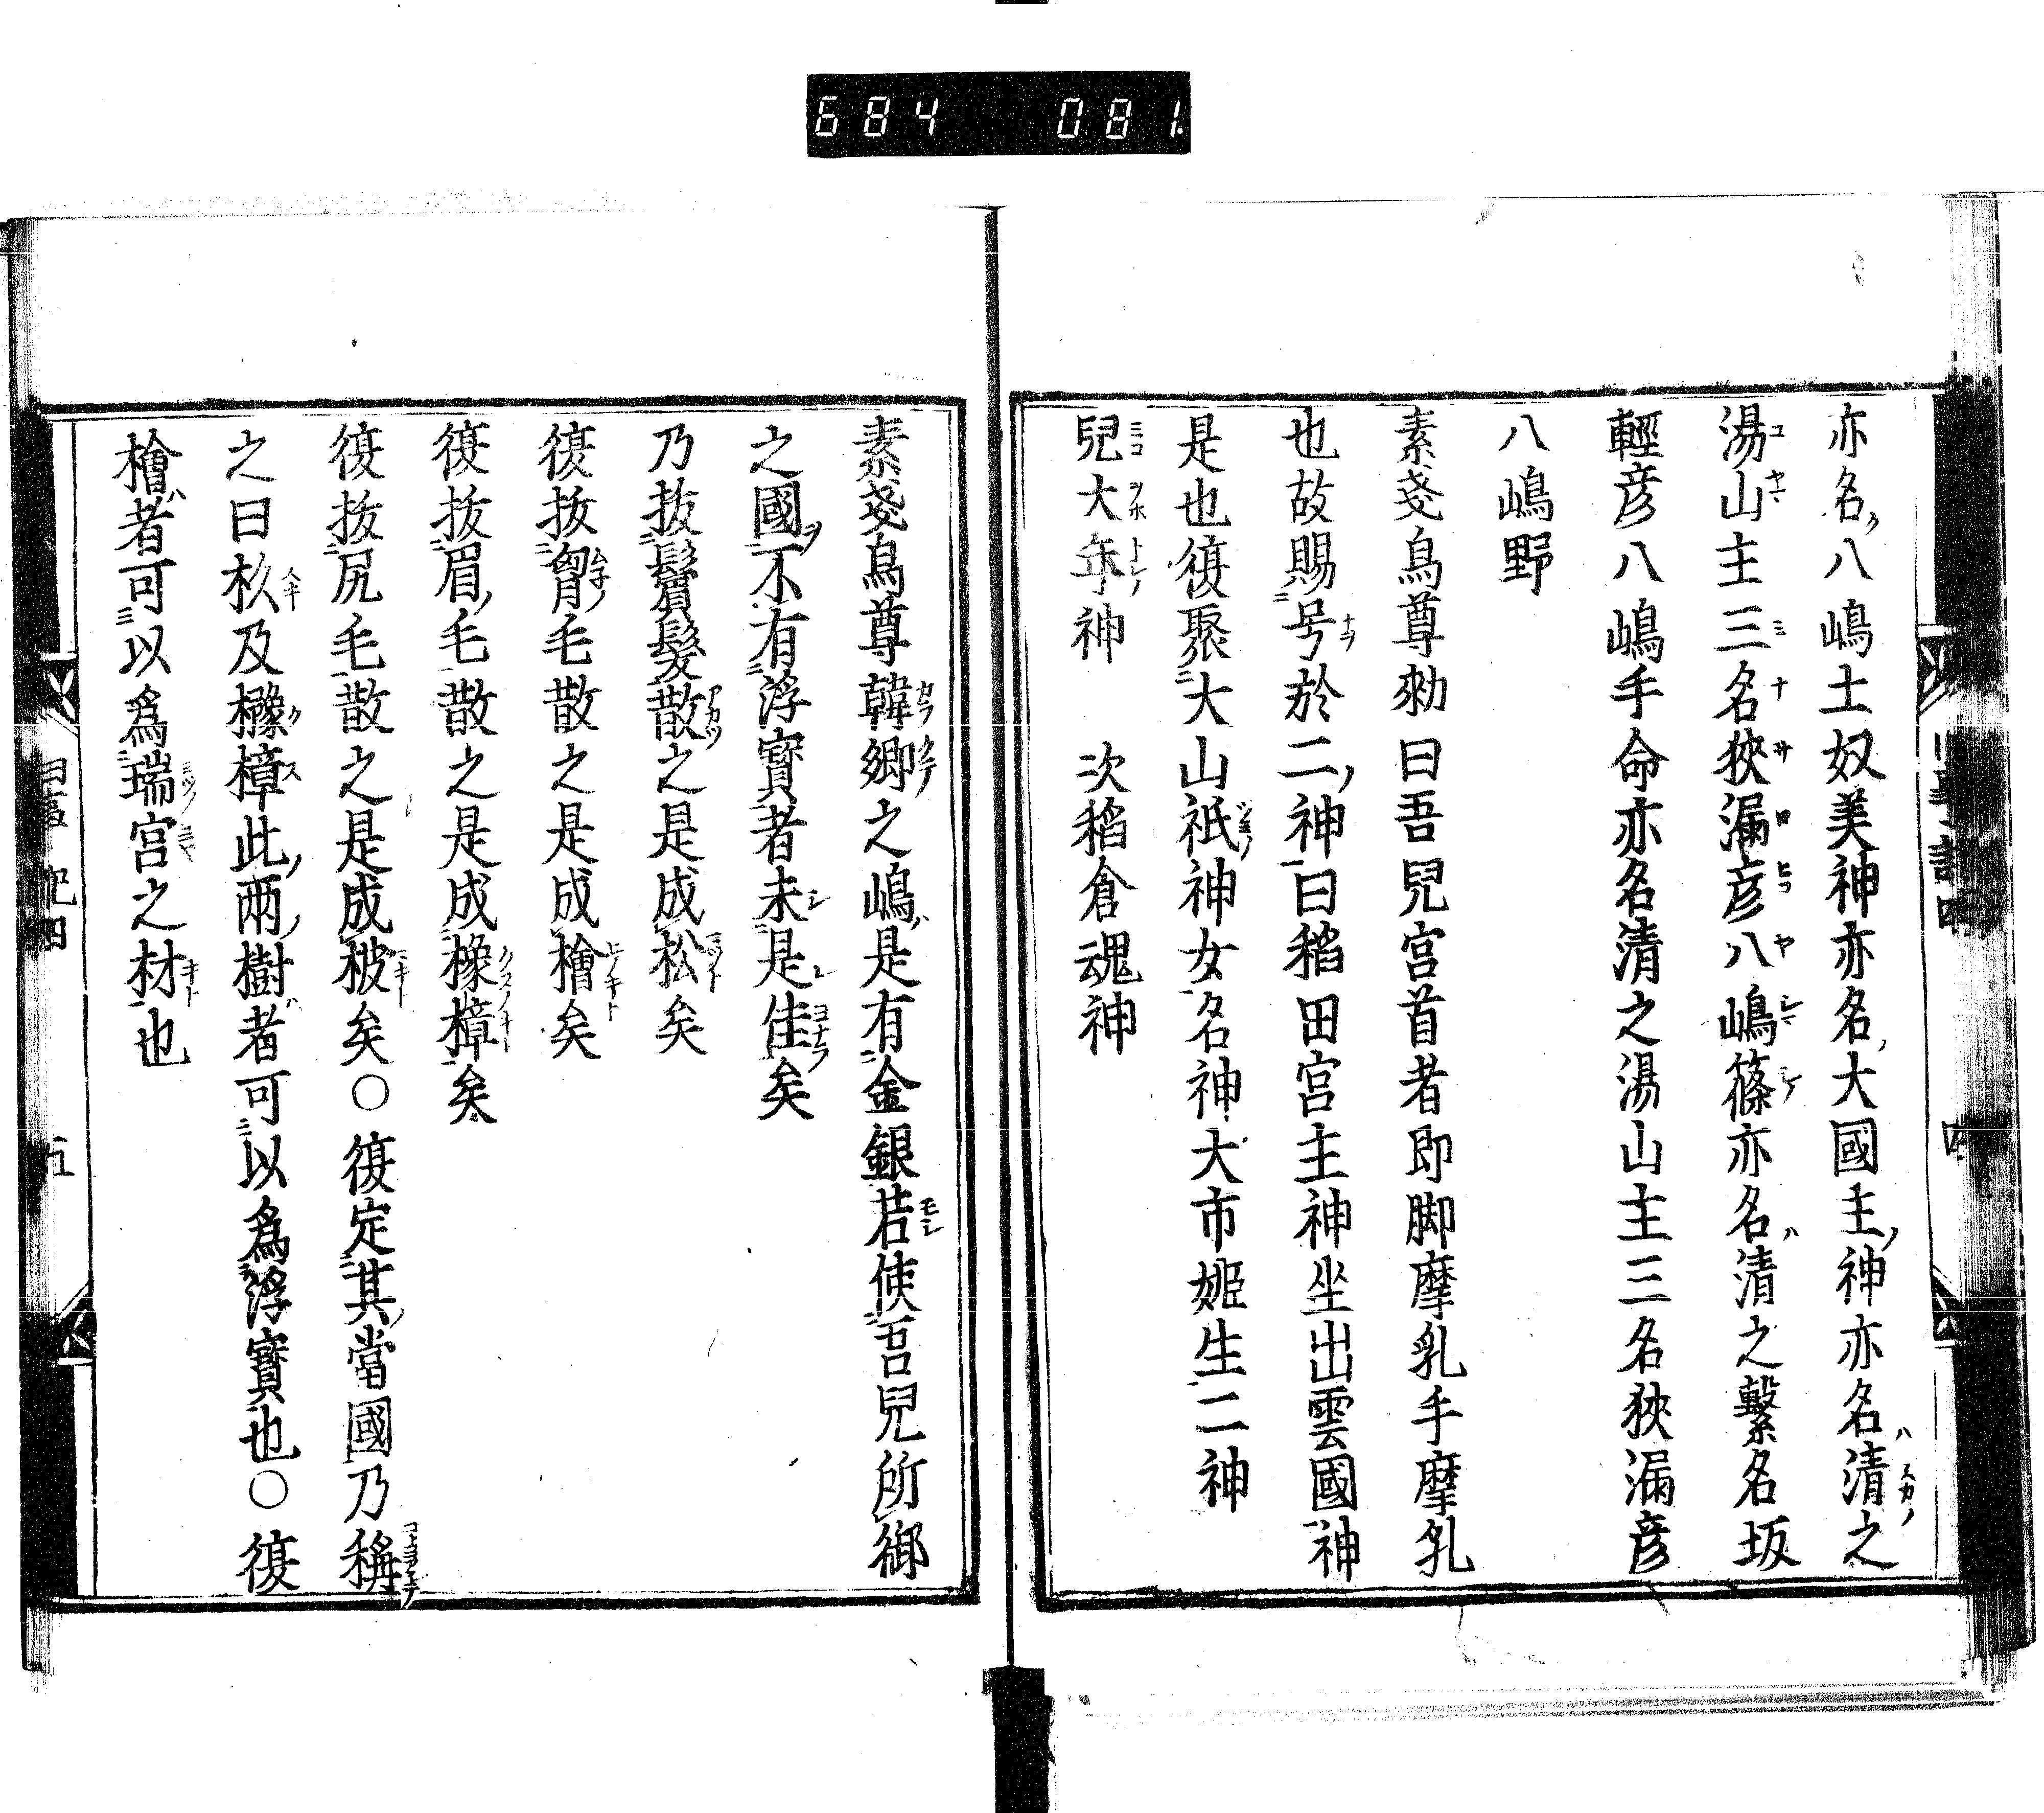 684 081
亦名八嶋土奴美神亦名大國主神亦名清之
湯山主三名狹漏彦八嶋篠亦名清之繫名坂
輕彦八嶋手命亦名清之湯山主三名狹漏彦
八嶋野
素戔烏尊勑曰吾兒宮首者即脚摩乳手摩乳
也故賜号於二神曰稻田宮主神坐出雲國神
是也復聚大山祇神女名神大市姬生二神
兒大年神 次稻倉魂神
素戔烏尊韓郷之嶋是有金銀若使吾兒所御
之國不有浮寶者未是佳矣
乃拔鬚髮散之是成松矣
復拔胷毛散之是成檜矣
復拔眉毛散之是成櫲樟矣
復拔尻毛散之是成柀矣〇復定其當國乃稱
之曰杦及櫲樟此兩樹者可以為浮寶也〇復
檜者可以為瑞宮之材也
五